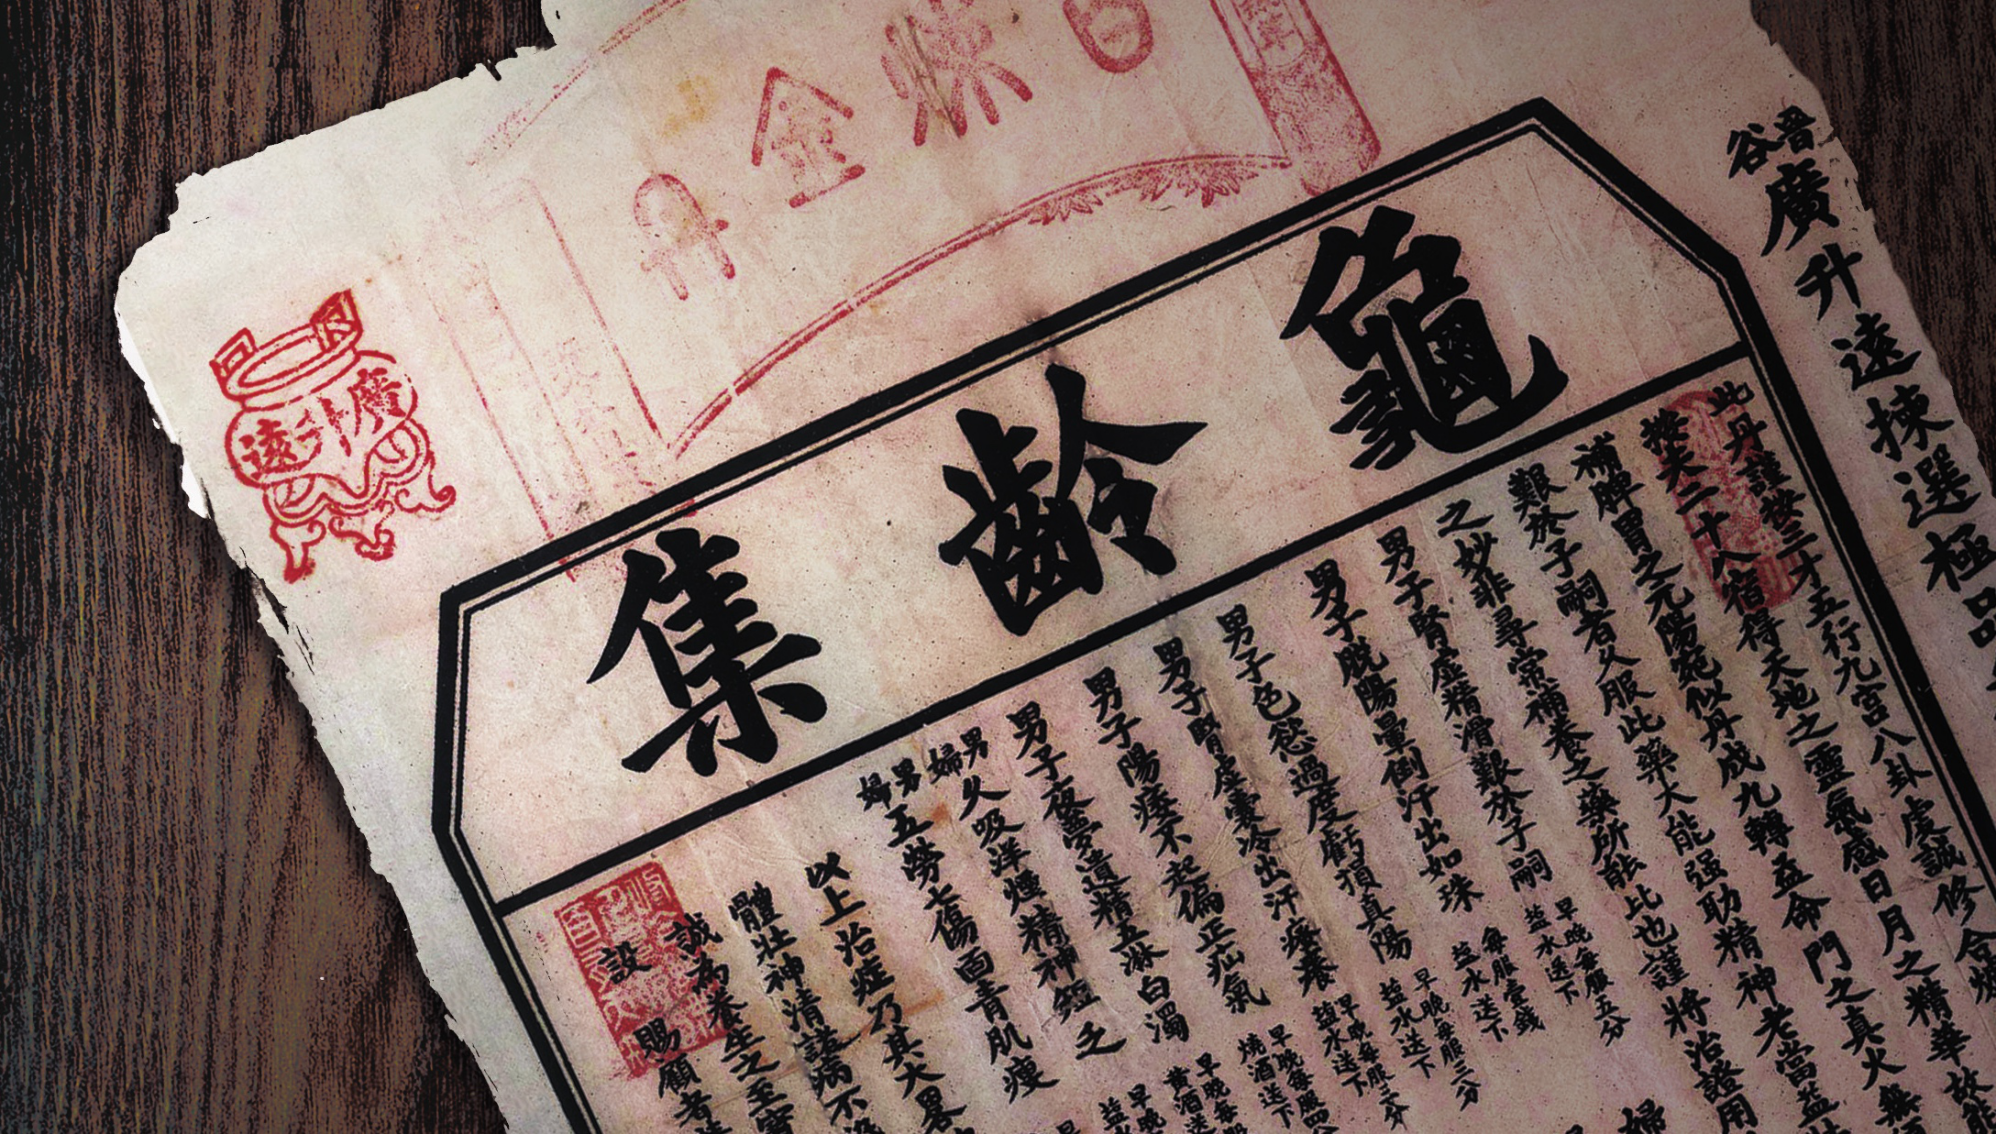 煉金丹
廣升遠
晋谷廣升遠揀選極品
龜齡集
此丹謹按三才五行九宮八卦虔誠修合煉
按天二十八宿得天地之靈氣感日月之精華故能
補脾胃之元陽宛似丹成九轉益命門之真火無
艱於子嗣者久服此藥大能强助精神老當益壯
之妙非尋常補養之藥所能比也謹將治證用
男子腎虛精滑艱於子嗣 早晚每服五分 益水送下
男子脫陽暈倒汗出如珠 每服壹錢 益水送下
男子色慾過度虧損真陽 早晚每服三分 益水送下
男子腎虛囊冷出汗瘙癢 早晚每服二分 鹽水送下
男子陽痿不起偏正疝氣 早晚每服四分 燒酒送下
男子夜夢遺精五淋白濁 早晚每 黃酒送
男婦久吸洋煙精神短乏 早晚 益水
男婦五勞七傷面青肌瘦 早
以上治症乃其大畧
體壯神清諸病不
誠為養生之至寶
設 賜顧者
婦